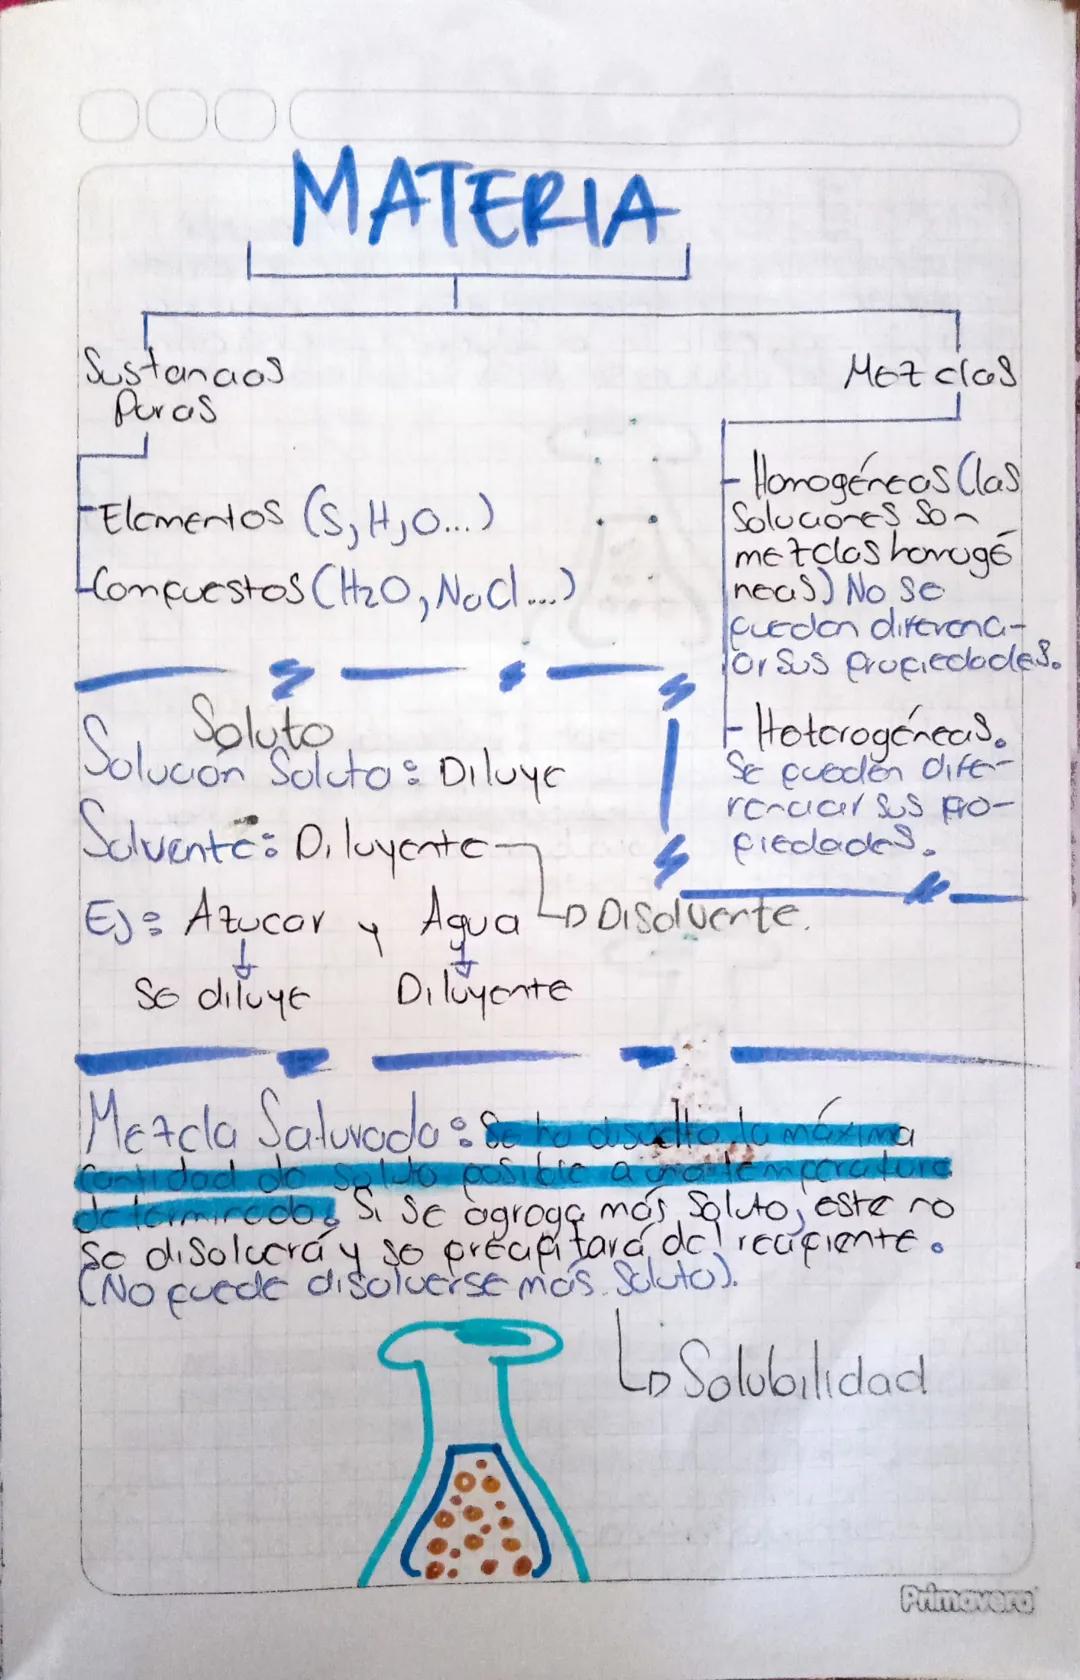 MATERIA
Sustancias
Puras
-Elementos (S, H, O...)
-Compuestos (H2O, NaCl...)
Mezclas
- Homogéneas (las
Soluciones Son
mezclas homogé
neas) No se
pueden diferenci-
ar sus propiedades.
- Heterogéneas.
Se pueden dife-
renciar sus pro-
piedades.
Soluto
Solución Soluto: Diluye
Solvente: Diluyente
Disolvente.
Ej: Azucar y Agua
Se diluye Diluyente
Mezcla Saturada: Se ha disuelto la máxima
Cantidad de soluto posible a una temperatura
determinada. Si se agrega más Soluto, este no
se disolverá y se precipitará del recipiente.
(No puede disolverse más Soluto).
Solubilidad
Primavera